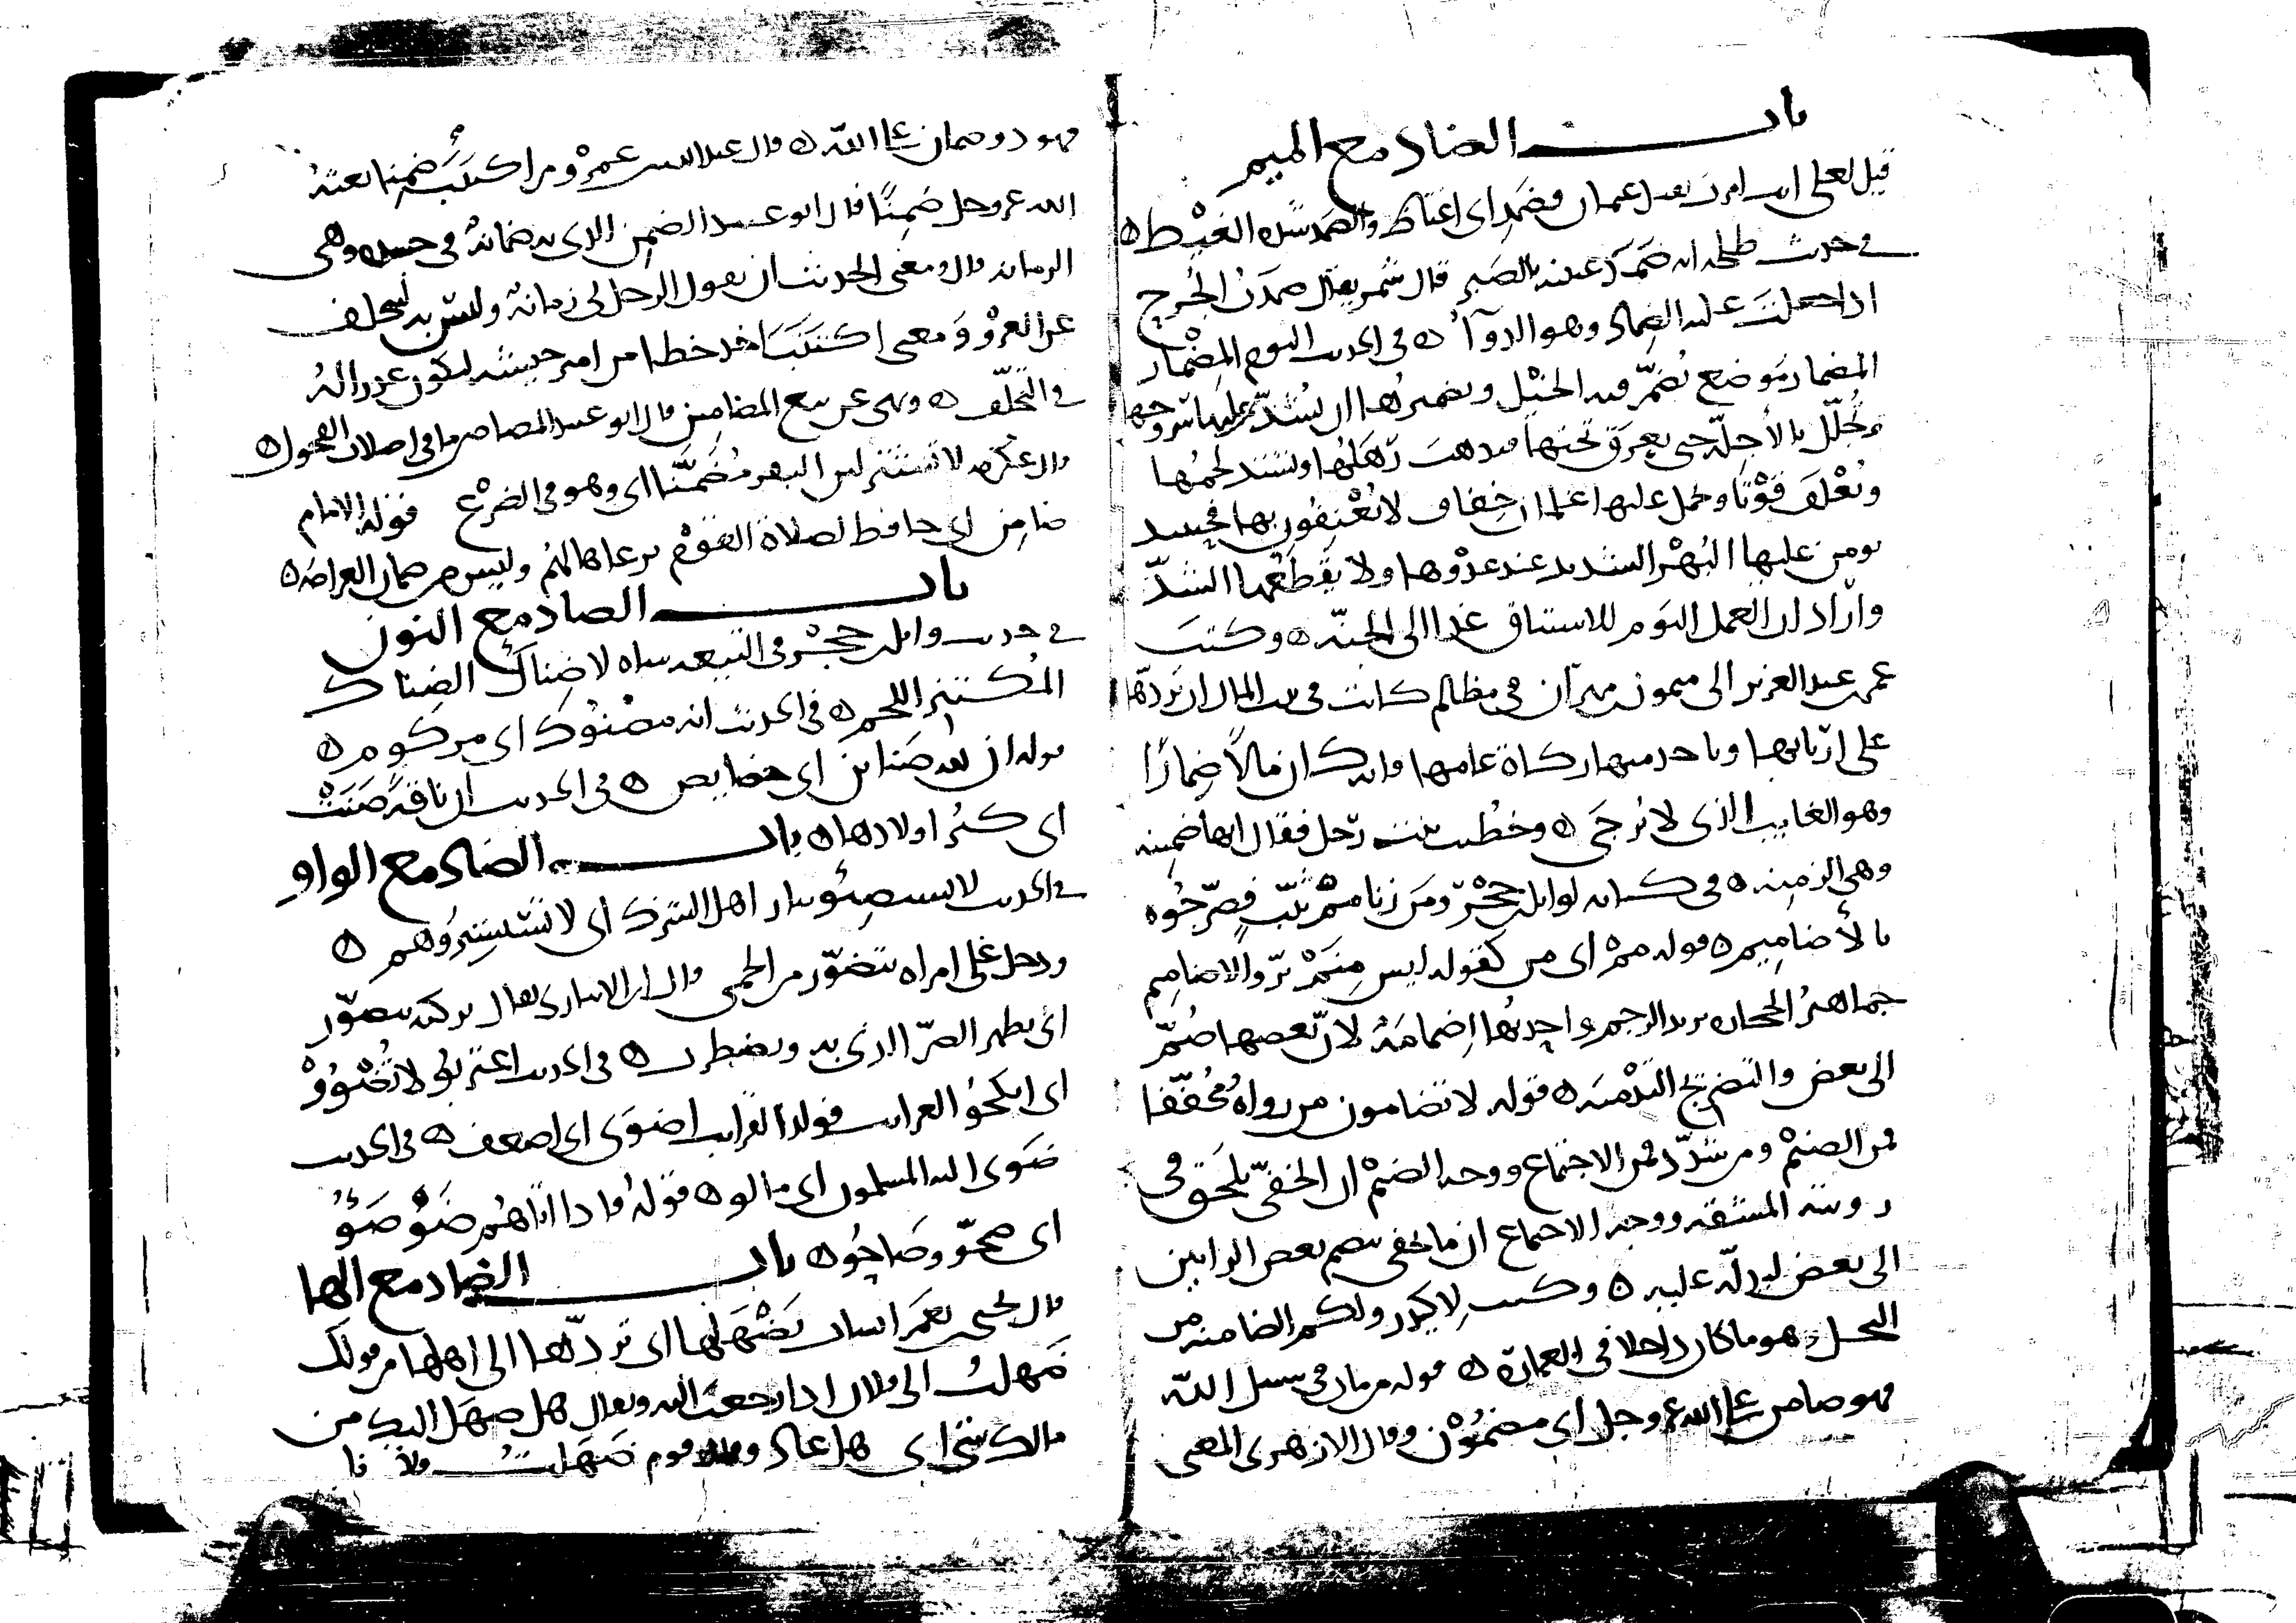 باب الضاد مع الميم
قيل لعلي انت امرت بقتل عثمان فضمد اي اغتاظ والضمد شدة الغيظ ه
في حديث طلحة انه ضمد عينه بالصبر قال شمر يقال ضمدت الجرح
اذا جعلت عليه الضماد وهو الدواء ه في الحديث اليوم المضمار
المضمار موضع تضمر فيه الخيل وتضميرها ان تشد عليها سروجها
وتجلل بالأجلة حتى يعرق تحتها فيذهب رهلها ويشتد لحمها
وتعلف قوتا ويحمل عليها غلمان خفاف لا يعنفون بها فحينئذ
يومن عليها البهر الشديد عند عدوها ولا يقطعها الشد
واراد ان العمل اليوم للاستباق غدا الى الجنة ه وكتب
عمر بن عبد العزيز الى ميمون بن مهران في مظالم كانت في بيت المال ان تردها
على اربابها وياخذ منها زكاة عامها وانه كان مالا ضمارا
وهو الغايب الذي لا يرجى ه وخطبت بنت رجل فقال انها ضمنة
وهي الزمنة ه في كتابه لوايل بن حجر ومن زنا مم ثيب فضرجوه
بالأضاميم ه قوله مم اي من كقوله ليس منم بر والاضاميم
جماهير الحجارة يريد الرجم واحدتها إضمامة لان بعضها ضم
الى بعض والتضريج التدمية ه قوله لا تضامون من رواه مخففا
فمن الضيم ومن شدد فمن الاجتماع ووجه الضيم ان الخفي يلحق في
رويته المشقة ووجه الاجتماع ان ما يخفى ينضم بعض الرايين
الى بعض ليدله عليه ه وكتب لاكيدر ولكم الضامنة من
النخل وهو ما كان داخلا في العمارة ه قوله من مات في سبيل الله
فهو ضامن على الله عز وجل اي مضمون وقال الازهري المعنى
فهو ذو ضمان على الله ه قال عبد الله بن عمرو من اكتتب ضمنا بعثه
الله عز وجل ضمنا قال ابو عبيد الضمن الذي به ضمانة في جسده وهي
الزمانة قال ومعنى الحديث ان يقول الرجل لي زمانة وليس به ليتخلف
عن الغزو ومعنى اكتتب اخذ خطا من امير جيشه ليكون عذرا له
في التخلف ه ونهى عن بيع المضامين قال ابو عبيد المضامين ما في اصلاب الفحول ه
قال عكرمة لا تشتر لبن البقر مضمنا اي وهو في الضرع قوله الامام
ضامن اي حافظ لصلاة القوم يرعاها لهم وليس من ضمان الغرامة ه
باب الضاد مع النون
في حديث وايل بن حجر في التيعة شاة لا ضناك الضناك
المكتنز اللحم ه في الحديث انه مضنوك اي مزكوم ه
قوله ان لله ضناين اي خصايص ه في الحديث ان ناقة ضنت
اي كثر اولادها ه باب الضاد مع الواو
في الحديث لا تستضيئوا بنار اهل الشرك اي لا تستشيروهم ه
ودخل على امراه تتضور من الحمى قال ابن الانباري يقال تركته يتضور
اي يظهر الضر الذي به ويضطرب ه في الحديث اغتربوا لا تضووا
اي انكحوا الغرايب فولد القرايب اضوى اي اضعف ه في الحديث
ضوى اليه المسلمون اي مالوا ه قوله فاذا اتاهم ضوضؤ
اي ضجو وصاحوا ه باب الضاد مع الها
قال يحيى بن يعمر انشات تضهلها اي تردها الى اهلها من قولك
ضهلت الى فلان اذا رجعت اليه ويقال هل ضهل اليك من
مالك شي اي هل عاد وقال قوم ضهلت فلانا